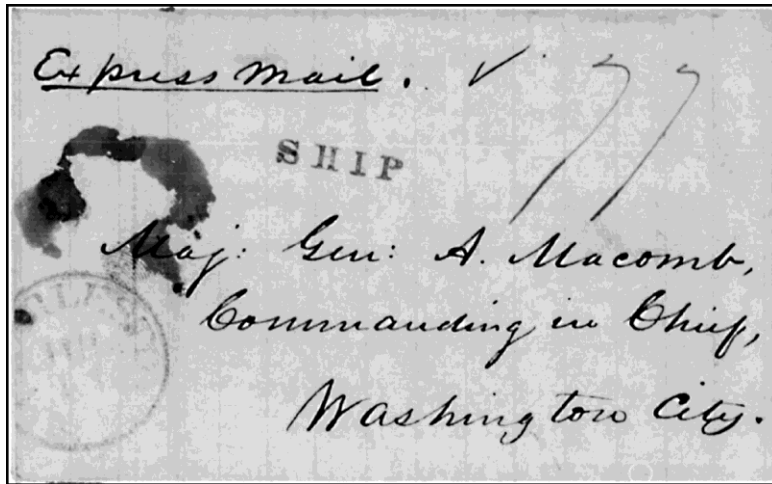 Express Mail. 77
SHIP
Maj: Gen: A. Macomb,
Commanding in Chief,
Washington City.